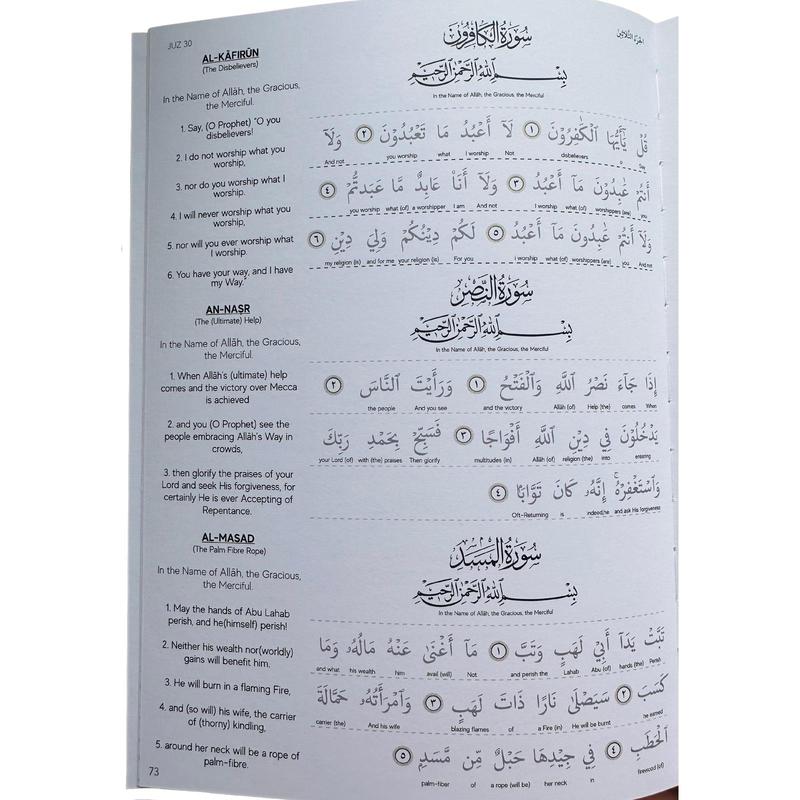 JUZ 30
AL-KĀFIRŪN
(The Disbelievers)
In the Name of Allāh, the Gracious,
the Merciful.
1. Say, (O Prophet) "O you
disbelievers!
2. I do not worship what you
worship,
3. nor do you worship what I
worship.
4. I will never worship what you
worship,
5. nor will you ever worship what
I worship.
6. You have your way, and I have
my Way."
AN-NAṢR
(The (Ultimate) Help)
In the Name of Allāh, the Gracious,
the Merciful.
1. When Allāh's (ultimate) help
comes and the victory over Mecca
is achieved
2. and you (O Prophet) see the
people embracing Allāh's Way in
crowds,
3. then glorify the praises of your
Lord and seek His forgiveness, for
certainly He is ever Accepting of
Repentance.
AL-MASAD
(The Palm Fibre Rope)
In the Name of Allāh, the Gracious,
the Merciful.
1. May the hands of Abu Lahab
perish, and he(himself) perish!
2. Neither his wealth nor(worldly)
gains will benefit him.
3. He will burn in a flaming Fire,
4. and (so will) his wife, the carrier
of (thorny) kindling,
5. around her neck will be a rope of
palm-fibre.
73
الجزء الثلاثين
سُورَةُ الكَافِرُونَ
بِسْمِ اللَّهِ الرَّحْمَٰنِ الرَّحِيمِ
In the Name of Allāh, the Gracious, the Merciful
قُلْ يَٰٓأَيُّهَا ٱلْكَٰفِرُونَ ١ لَآ أَعْبُدُ مَا تَعْبُدُونَ ٢ وَلَآ
And not you worship what I worship Not disbelievers O Say
أَنتُمْ عَٰبِدُونَ مَآ أَعْبُدُ ٣ وَلَآ أَنَا۠ عَابِدٌ مَّا عَبَدتُّمْ ٤
you worship what (of) a worshipper I am And not I worship what (of) worshippers (are) you
وَلَآ أَنتُمْ عَٰبِدُونَ مَآ أَعْبُدُ ٥ لَكُمْ دِينُكُمْ وَلِيَ دِينِ ٦
my religion (is) and for me your religion (is) For you I worship what (of) worshippers (are) you And not
سُورَةُ النَّصْرِ
بِسْمِ اللَّهِ الرَّحْمَٰنِ الرَّحِيمِ
In the Name of Allāh, the Gracious, the Merciful
إِذَا جَآءَ نَصْرُ ٱللَّهِ وَٱلْفَتْحُ ١ وَرَأَيْتَ ٱلنَّاسَ ٢
the people And you see and the victory Allāh (of) Help (the) comes When
يَدْخُلُونَ فِي دِينِ ٱللَّهِ أَفْوَاجًا ٣ فَسَبِّحْ بِحَمْدِ رَبِّكَ
your Lord (of) with (the) praises Then glorify multitudes (in) Allāh (of) religion (the) into entering
وَٱسْتَغْفِرْهُ ۚ إِنَّهُۥ كَانَ تَوَّابًا ٤
Oft-Returning is indeed,he and ask His forgiveness
سُورَةُ المَسَدِ
بِسْمِ اللَّهِ الرَّحْمَٰنِ الرَّحِيمِ
In the Name of Allāh, the Gracious, the Merciful
تَبَّتْ يَدَآ أَبِي لَهَبٍ وَتَبَّ ١ مَآ أَغْنَىٰ عَنْهُ مَالُهُۥ وَمَا
and what his wealth him avail (will) Not and perish the Lahab Abu (of) hands (the) Perish
كَسَبَ ٢ سَيَصْلَىٰ نَارًا ذَاتَ لَهَبٍ ٣ وَٱمْرَأَتُهُۥ حَمَّالَةَ
carrier (the) And his wife blazing flames of a Fire (in) He will be burnt he earned
ٱلْحَطَبِ ٤ فِي جِيدِهَا حَبْلٌ مِّن مَّسَدٍ ٥
palm-fiber of a rope (will be) her neck in firewood (of)